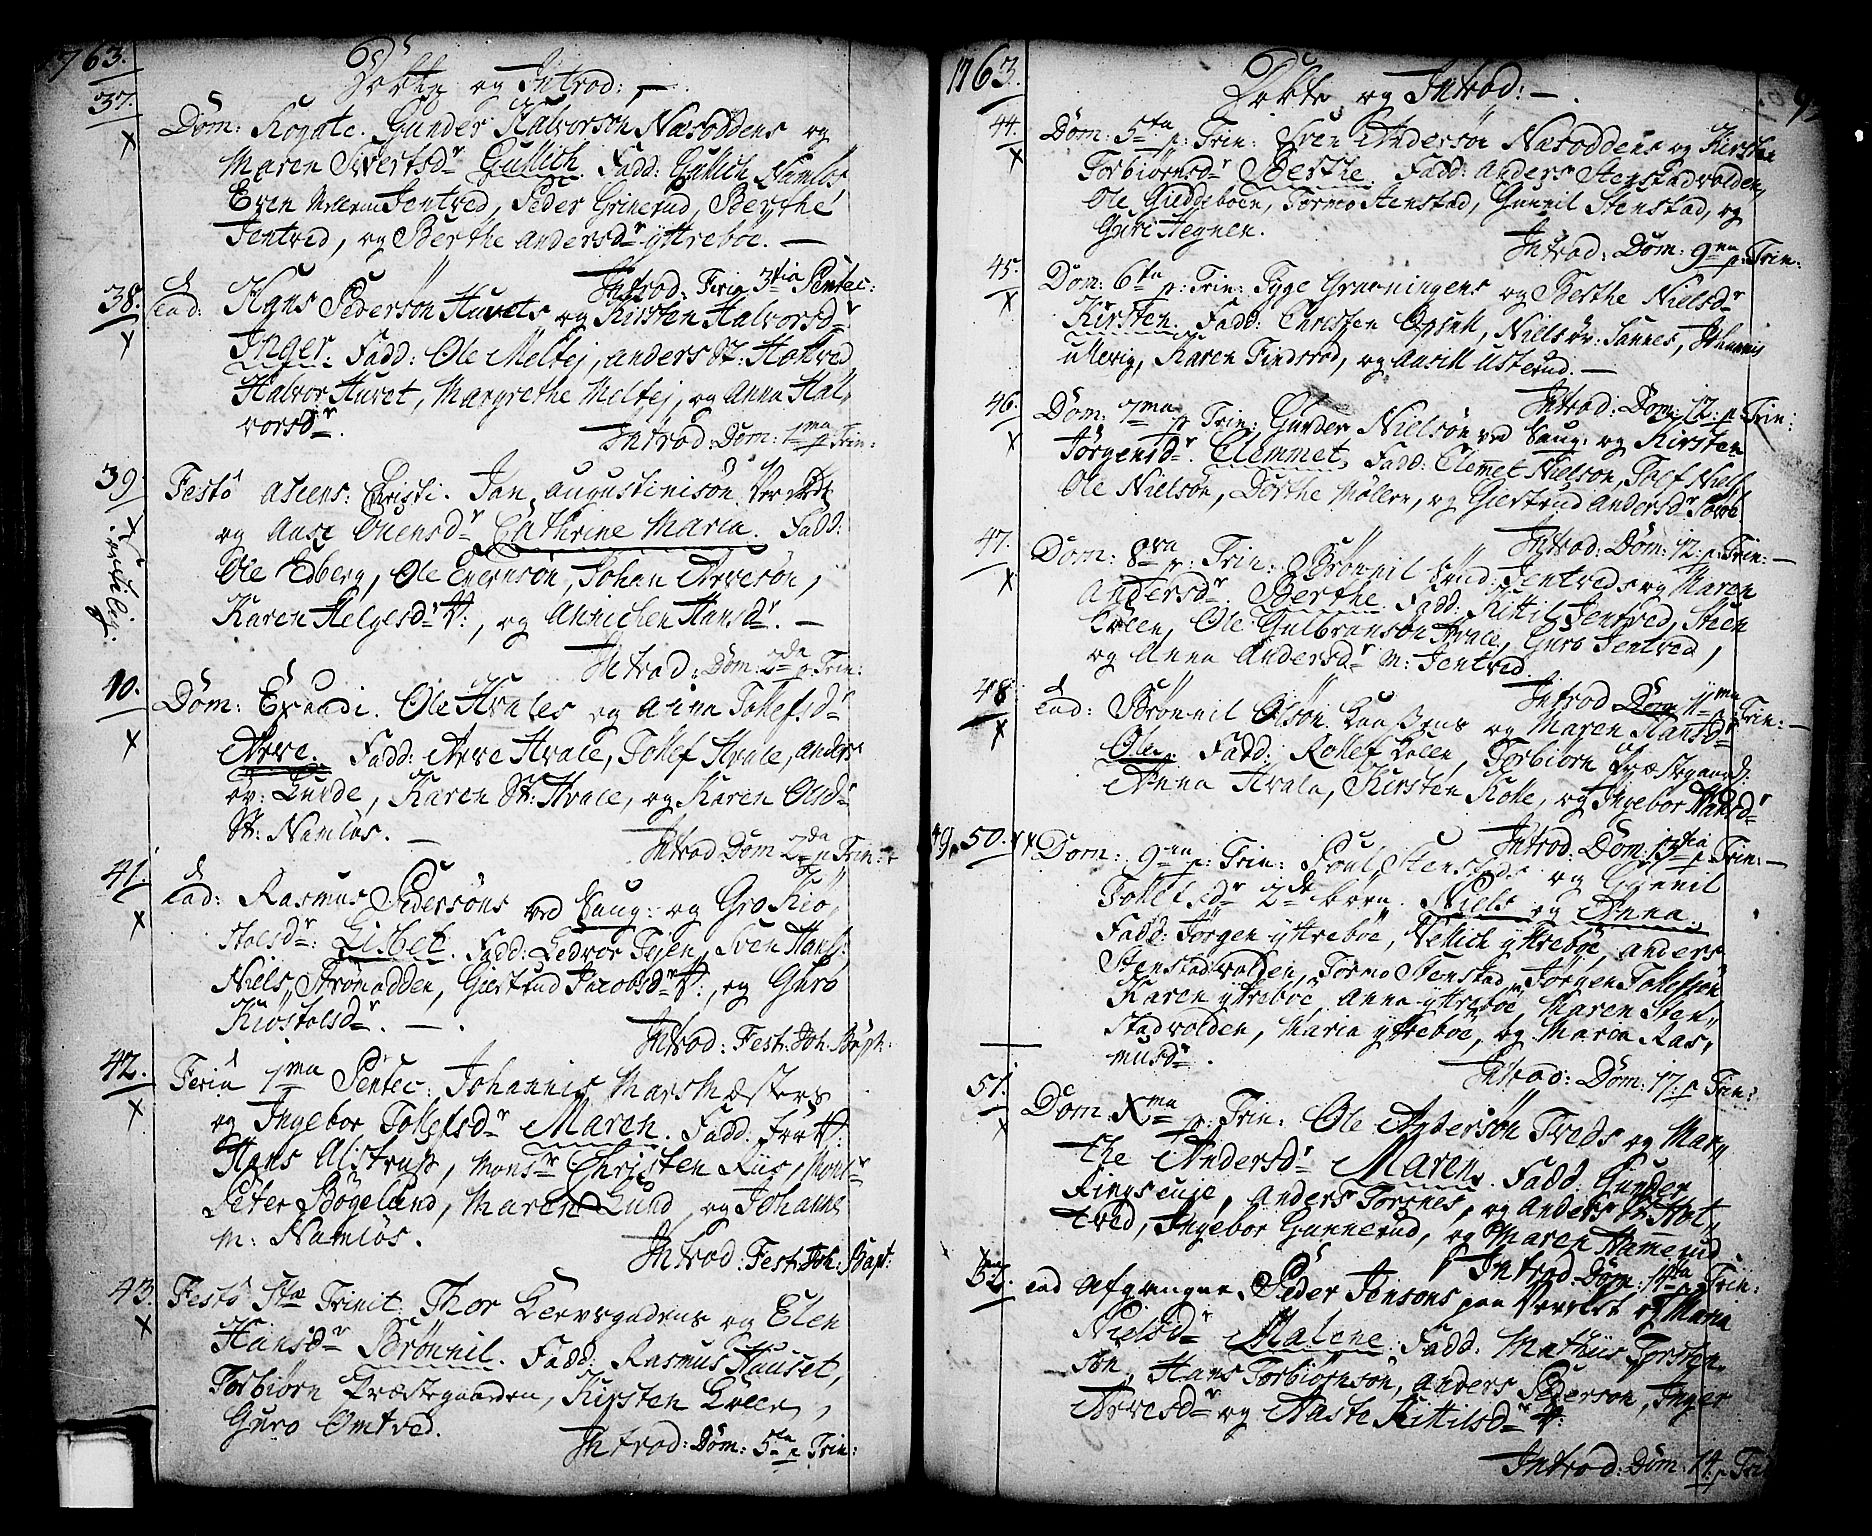 1763.
Døbte og Introd: —
37.
Dom: Rogate. Gunder Halvorsøn Næsoddens og
Maren Sivertsdr Gullich. Fadd: Gullich Namløs,
Even Jentved, Peder Grinerud, Berthe
Jentved, og Berthe Andersdr yttrebøe. —
Introd: Feria 3tia Pentec:
38.
Ead: Hans Pedersøn Huvets og Kirsten Halvorsdr
Inger. Fadd: Ole Meltej, Anders St: Holtved
Halvor Huvet, Margrethe Meltej, og Anna Hal,
vorsdr.
Introd: Dom: 1ma p Trin:
39.
Festo Ascens: Christi. Jan Augustinisøn
og Aase Olensdr Cathrine Maria. Fadd:
Ole Edberg, Ole Evensøn, Johan Arvesøn,
Karen Helgesdr, og Annichen Hansdr. —
Introd: Dom: 2da p Trin:
40.
Dom: Exaudi. Ole Hvales og Anna Tollefsdr
Arve. Fadd: Arve Hvale, Tollef Hvale, Anders
øv: Lunde, Karen St: Hvale, og Karen Olsdr
St: Namløs. —
Introd Dom 2da p Trin:
41.
Ead: Rasmus Pedersøns ved Laug: og Gro Kiø,
stolsdr: Lisbet. Fadd: Ledvor Teien, Sven Hans:
Niels Strømodden, Giertrud Jacobsdr, og Guro
Kiøstolsdr. —.
Introd: Fest: Joh. Bapt:
42.
Feria 1ma Pentec: Johannis Marsmæsters
og Ingebor Tollefsdr Maren. Fadd:
Hans Alstrup, Monsr Christen Riis, Monsr
Peter Bøgelund, Maren Lund, og Johanne
m: Namløs.
Introd: Fest: Joh: Bapt:
43.
Festo Stæ Trinit: Thor og Elen
Hansdr Brønnil. Fadd: Rasmus Hauset,
Torbiørn Præstegaarden, Kirsten Kleen,
Guro Omtved.
Introd: Dom: 5ta p Trin:
1763.
Døbte og Introd: —.
44.
Dom: 5ta p: Trin: Sven Andersøn Næsoddens og Kirsten
Torbiørnsdr Berthe. Fadd: Anders Stenstadvolden,
Ole Guddebøen, Tormo Stenstad, Gunnil Stenstad, og
Guri Hegnen.
Introd: Dom: 9na p Trin:
45.
Dom: 6ta p: Trin: Tyge Gravningens og Berthe Nielsdr
Kirsten. Fadd: Christen Opsull, Niels øv: Sannes, Johannis
Ullevig, Karen Tindsrød, og Aasill Usterud. —
Introd: Dom: 12: p Trin:
46.
Dom: 7ma p Trin: Gunder Nielsøn ved Laug: og Kirsten
Jørgensdr. Clemmet. Fadd: Clemet Nielsøn, Tolf Niels
Ole Nielsøn, Dorthe Møller, og Giertrud Andersdr
Introd: Dom: 12: p: Trin: —
47.
Dom: 8va p: Trin: Brønnil Sund: Jentveds og Maren
Andersdr. Berthe. Fadd: Kittil Jentved, Steen
Kleen, Ole Gulbransøn Hvale, Guro Jentved,
og Anna Andersdr m: Jentved.
Introd Dom 11ma p Trin: —
48.
Ead: Brønnil Olsøn og Maren Hansdr
Ole. Fadd: Rollef Kleen, Torbiørn Præstgaard:
Anna Hvala, Kirsten Kohe, og Ingebor Hansdr
Introd: Dom: 13tia p Trin: —
49, 50.
Dom: 9na p: Trin: Poul Stenstads og Gunnil
Tollefsdr 2de børn. Niels og Anna.
Fadd: Jørgen yttrebøe, Vellich yttrebøe, Anders
Stenstadvolden, Tormo Stenstad, Jørgen Tollefsøn
Karen yttrebøe, Anna yttrebøe, Maren Sten,
stadvolden, Maria yttrebøe, og Maren Ras,
musdr.
Introd: Dom: 17: p Trin:
51.
Dom: Xma p: Trin: Ole Andersøn Tveds og Mar,
the Andersdr Maren. Fadd: Gunder
Ringseuje, Anders Torsnes, og Anders Holt,
tved, Ingebor Gunnerud, og Maren Hammerud
Introd Dom: 14ta p Trin:
52.
Ead afgangne Peder Jensøns paa Værket og Maria
Nielsdr Malene. Fadd: Mathiis Torsten,
søn, Hans Torbiørnsøn, Anders Pedersøn, Inger
Arvesdr og Aaste Kittilsdr
Introd: Dom: 14 p Tri